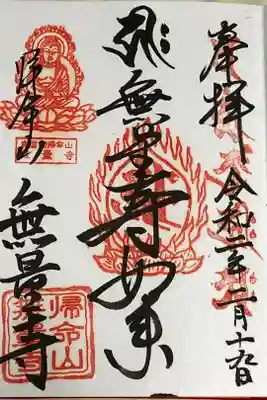 奉拝 令和二年二月十九日
無量寿如来
帰命山
無量寺
帰命山
無量寺